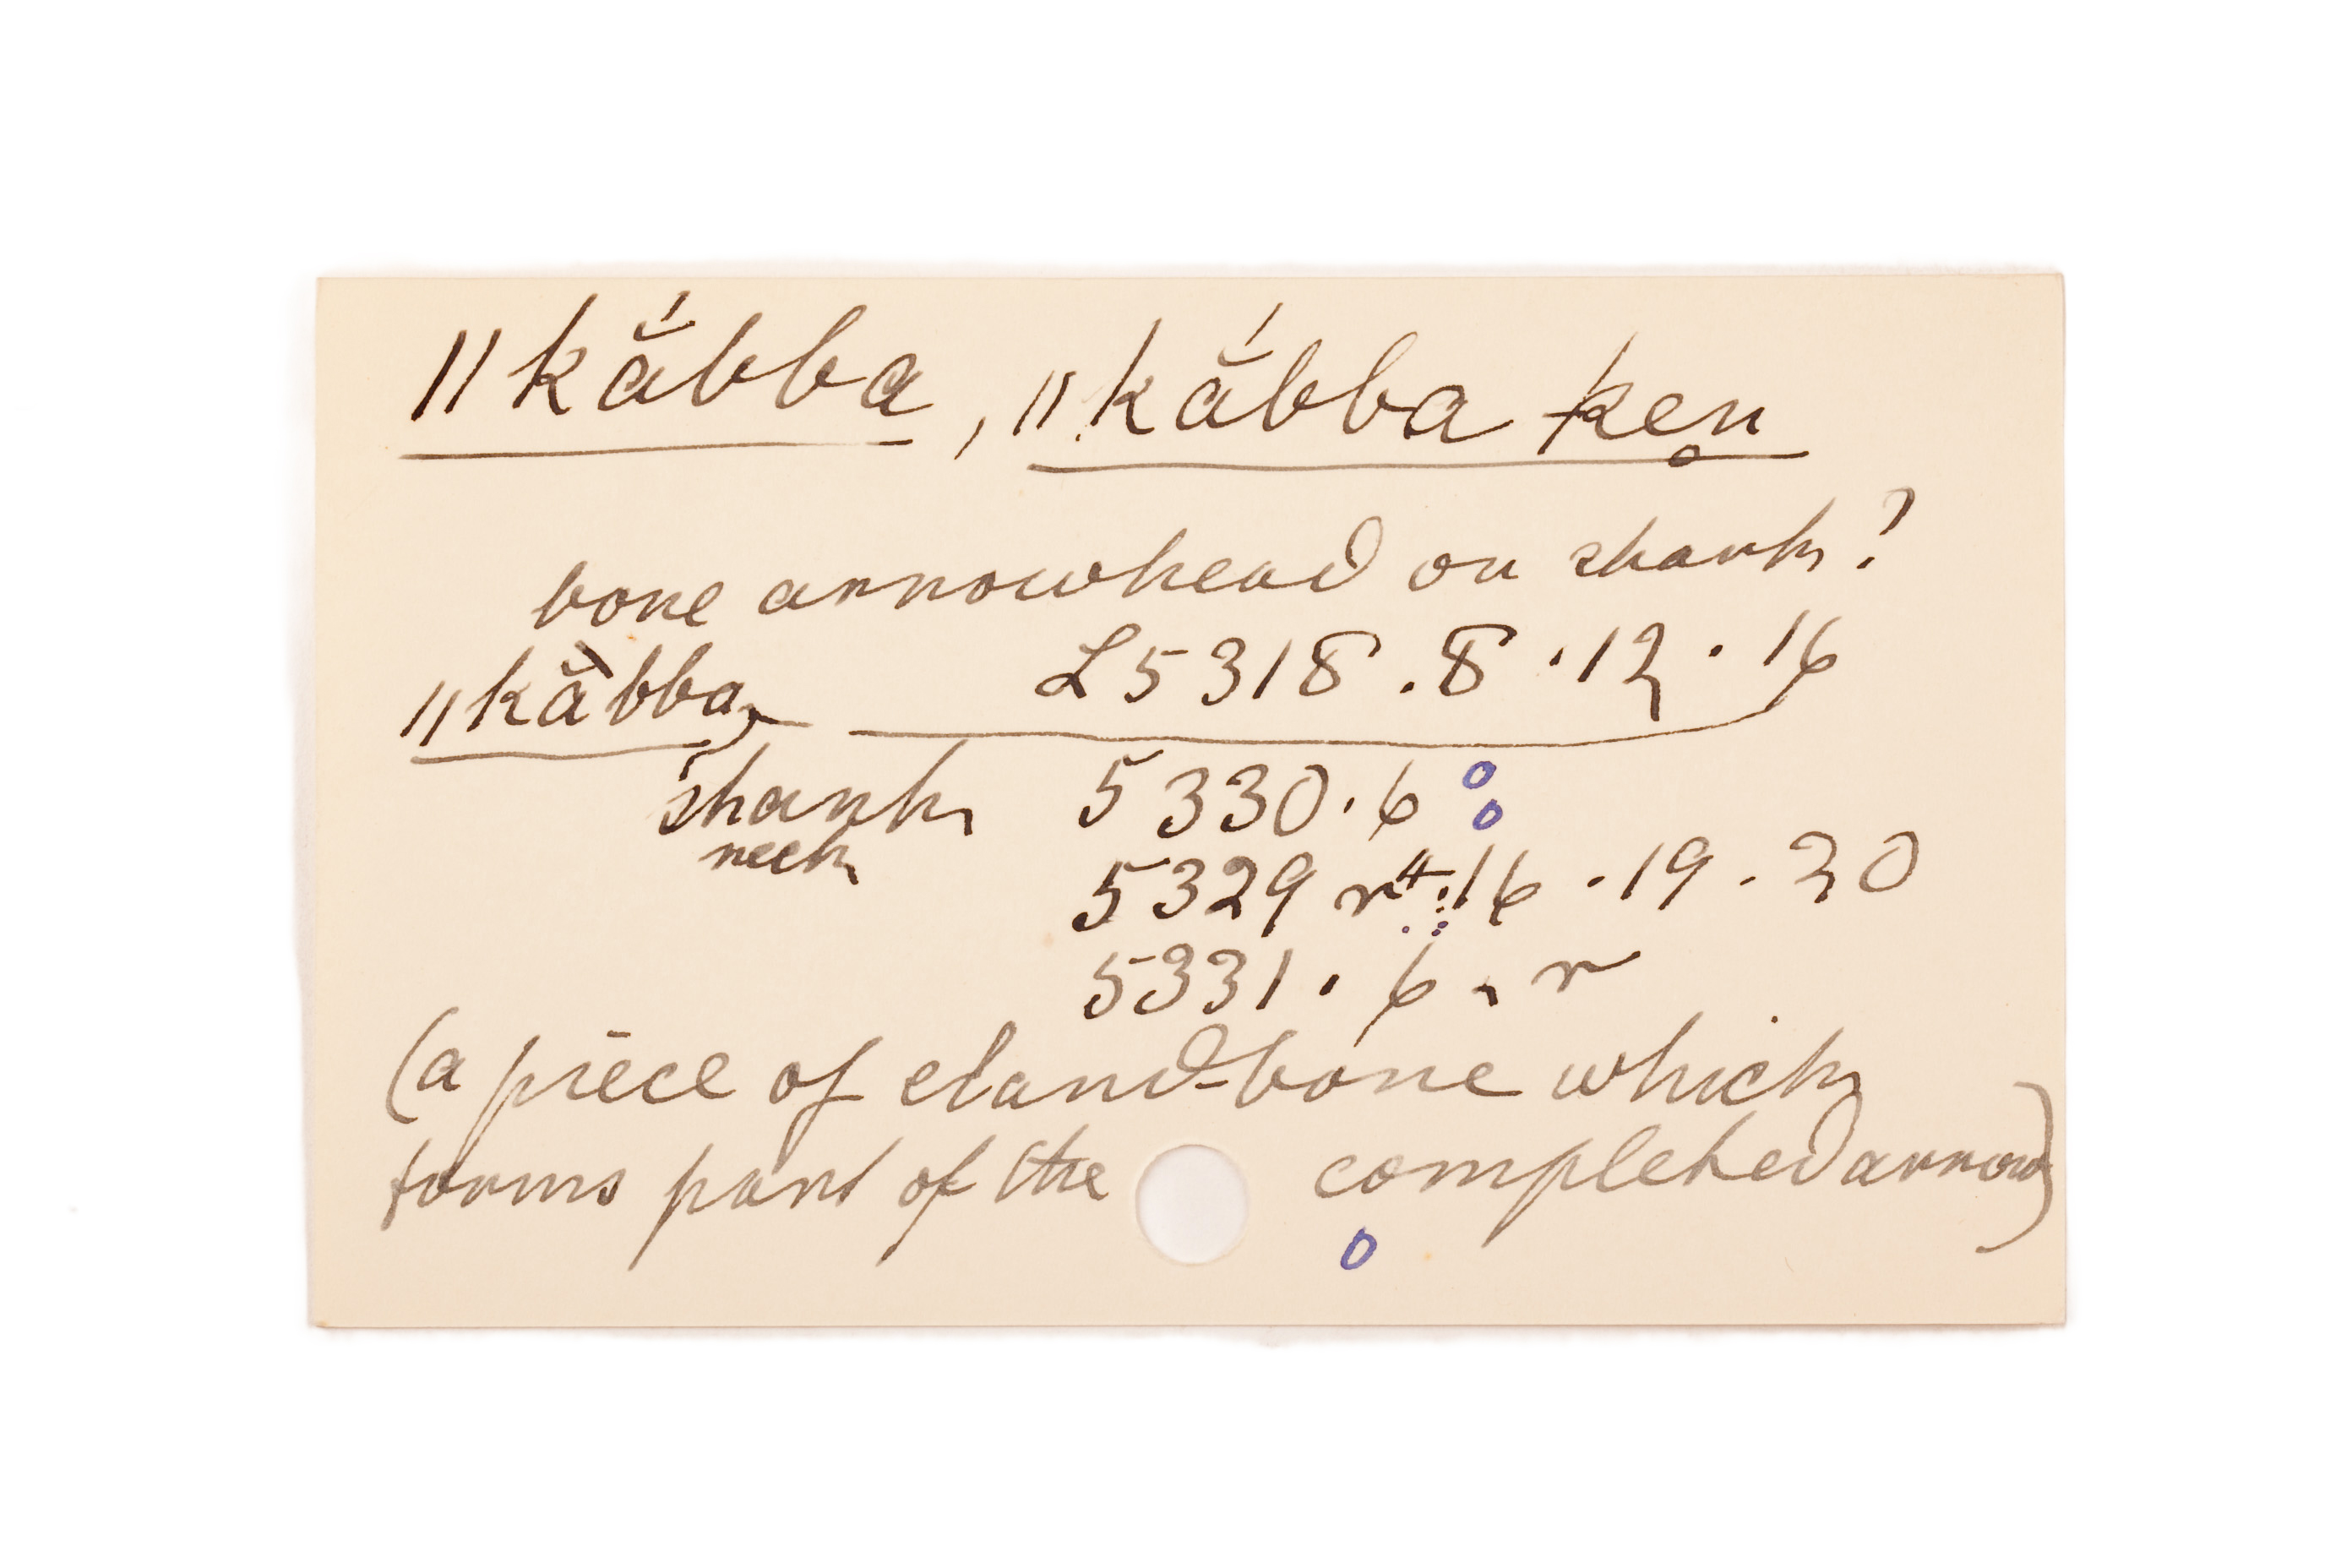 ǁkắbba, ǁkắbba ken̥
bone arrowhead or shank?
ǁkằbba, L5318.8.12.16
shank 5330.6
neck 5329 r⁴.16.19.20
5331.6.r
(a piece of eland-bone which
forms part of the completed arrow)